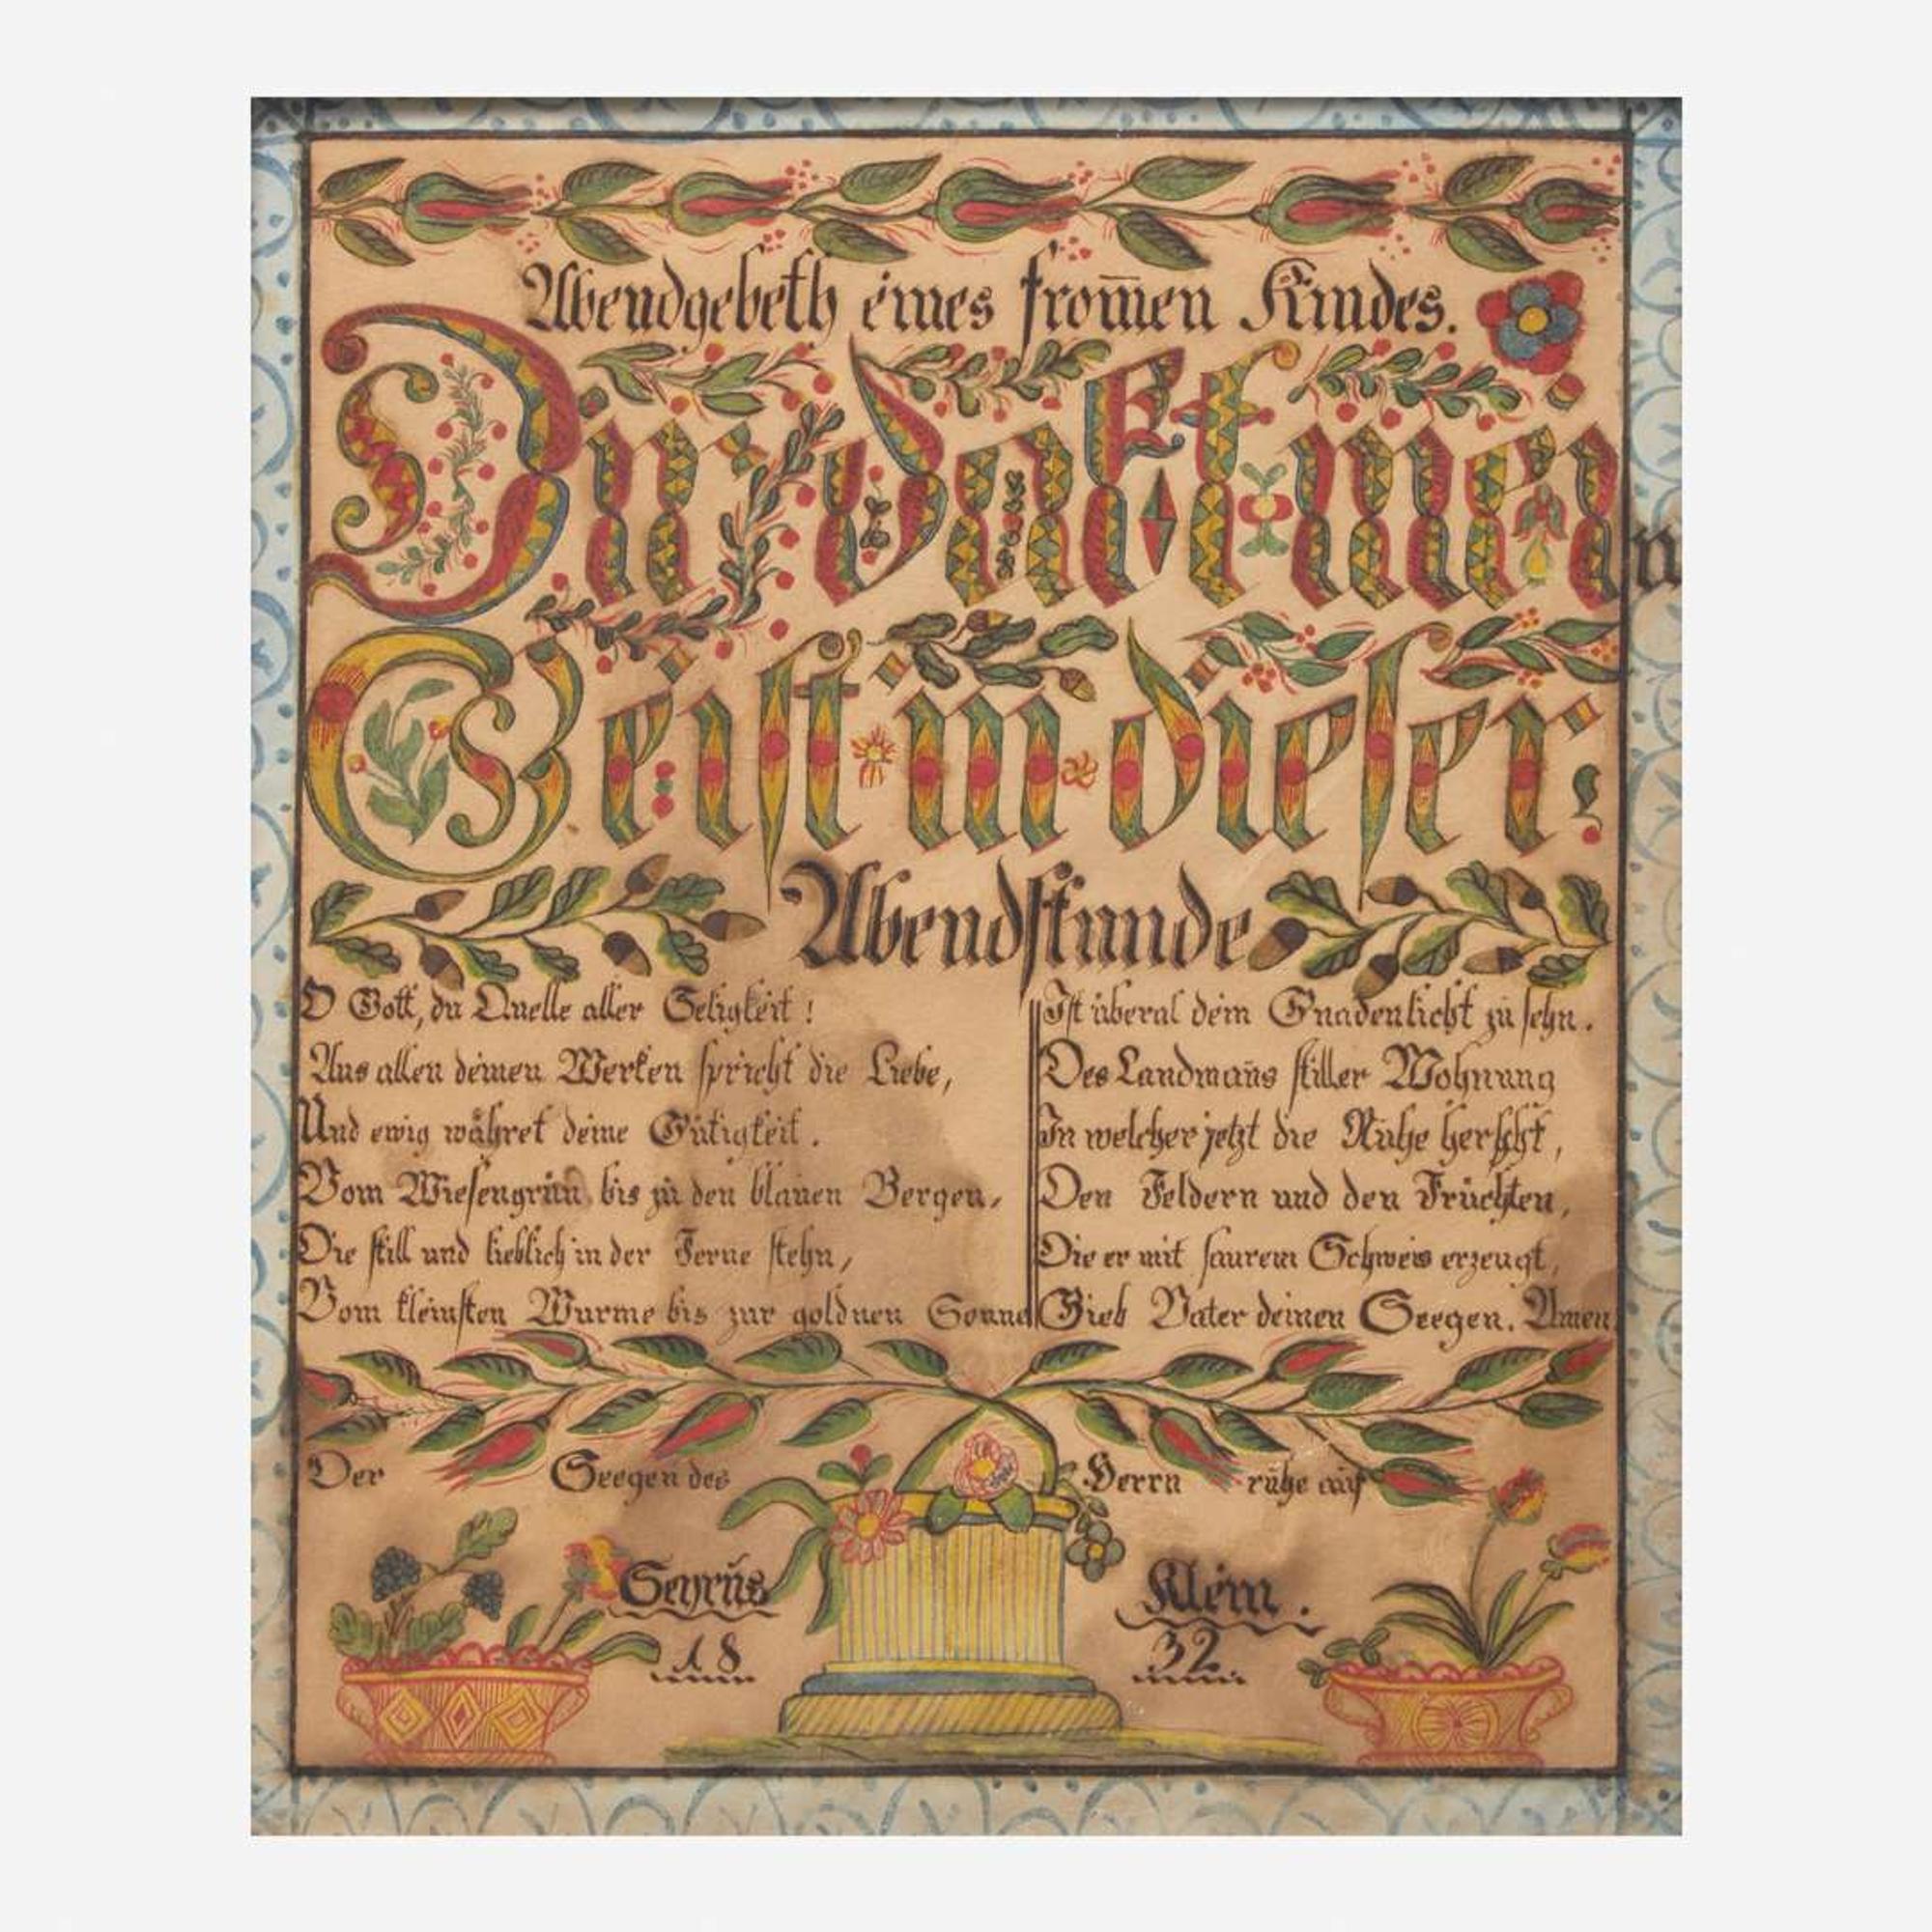 Abendgebeth eines from̄en Kindes.
Dir dakt mein
Geist in dieser
Abendstunde
O Gott, du Quelle aller Seligkeit!
Aus allen deinen Werken spricht die Liebe,
Und ewig währet deine Gütigkeit.
Vom Wiesengrün bis zu den blauen Bergen,
Die still und lieblich in der Ferne stehn,
Vom kleinsten Wurme bis zur goldnen Sonne
Ist überal dein Gnadenlicht zu sehn.
Des Landman̄s stiller Wohnung
In welcher jetzt die Ruhe herscht,
Den Feldern und den Früchten,
Die er mit saurem Schweis erzeugt,
Gieb Vater deinen Seegen. Amen
Der Seegen des Herrn ruhe auf
Seyrus Klein.
18 32